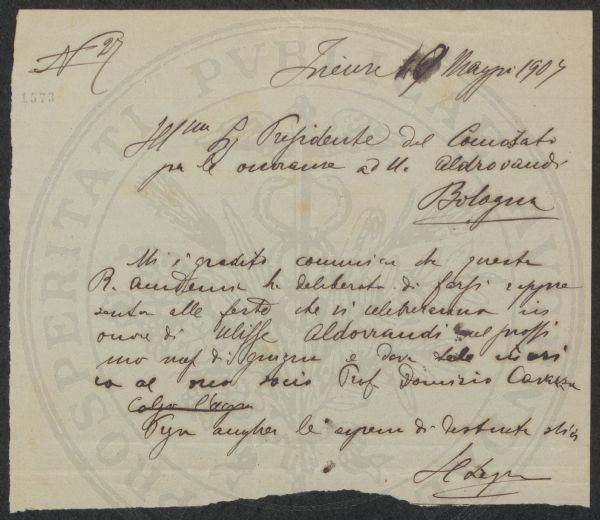 N 27
1573
Firenze 19 Maggio 1907
Ill^mo Sg Presidente del Comitato
per le onoranze ad U. Aldrovandi
Bologna
Mi è gradito comunicar che questa
R. Accademia ha deliberato di farsi rappre
sentar alle feste che si celebreranno in
onore di Ulisse Aldovrandi nel prossi
mo mese di giugno e dava tale incari
co al suo socio Prof Domizio Cavazza
le di distinta stima
Il
PROSPERITATI PVBLICAE